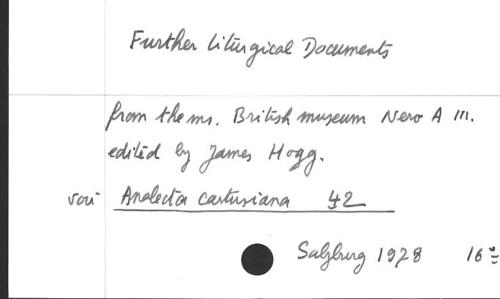 Further Liturgical Documents
from the ms. British museum Nero A III.
edited by James Hogg.
voir Analecta cartusiana 42
Salzburg 1978 16°